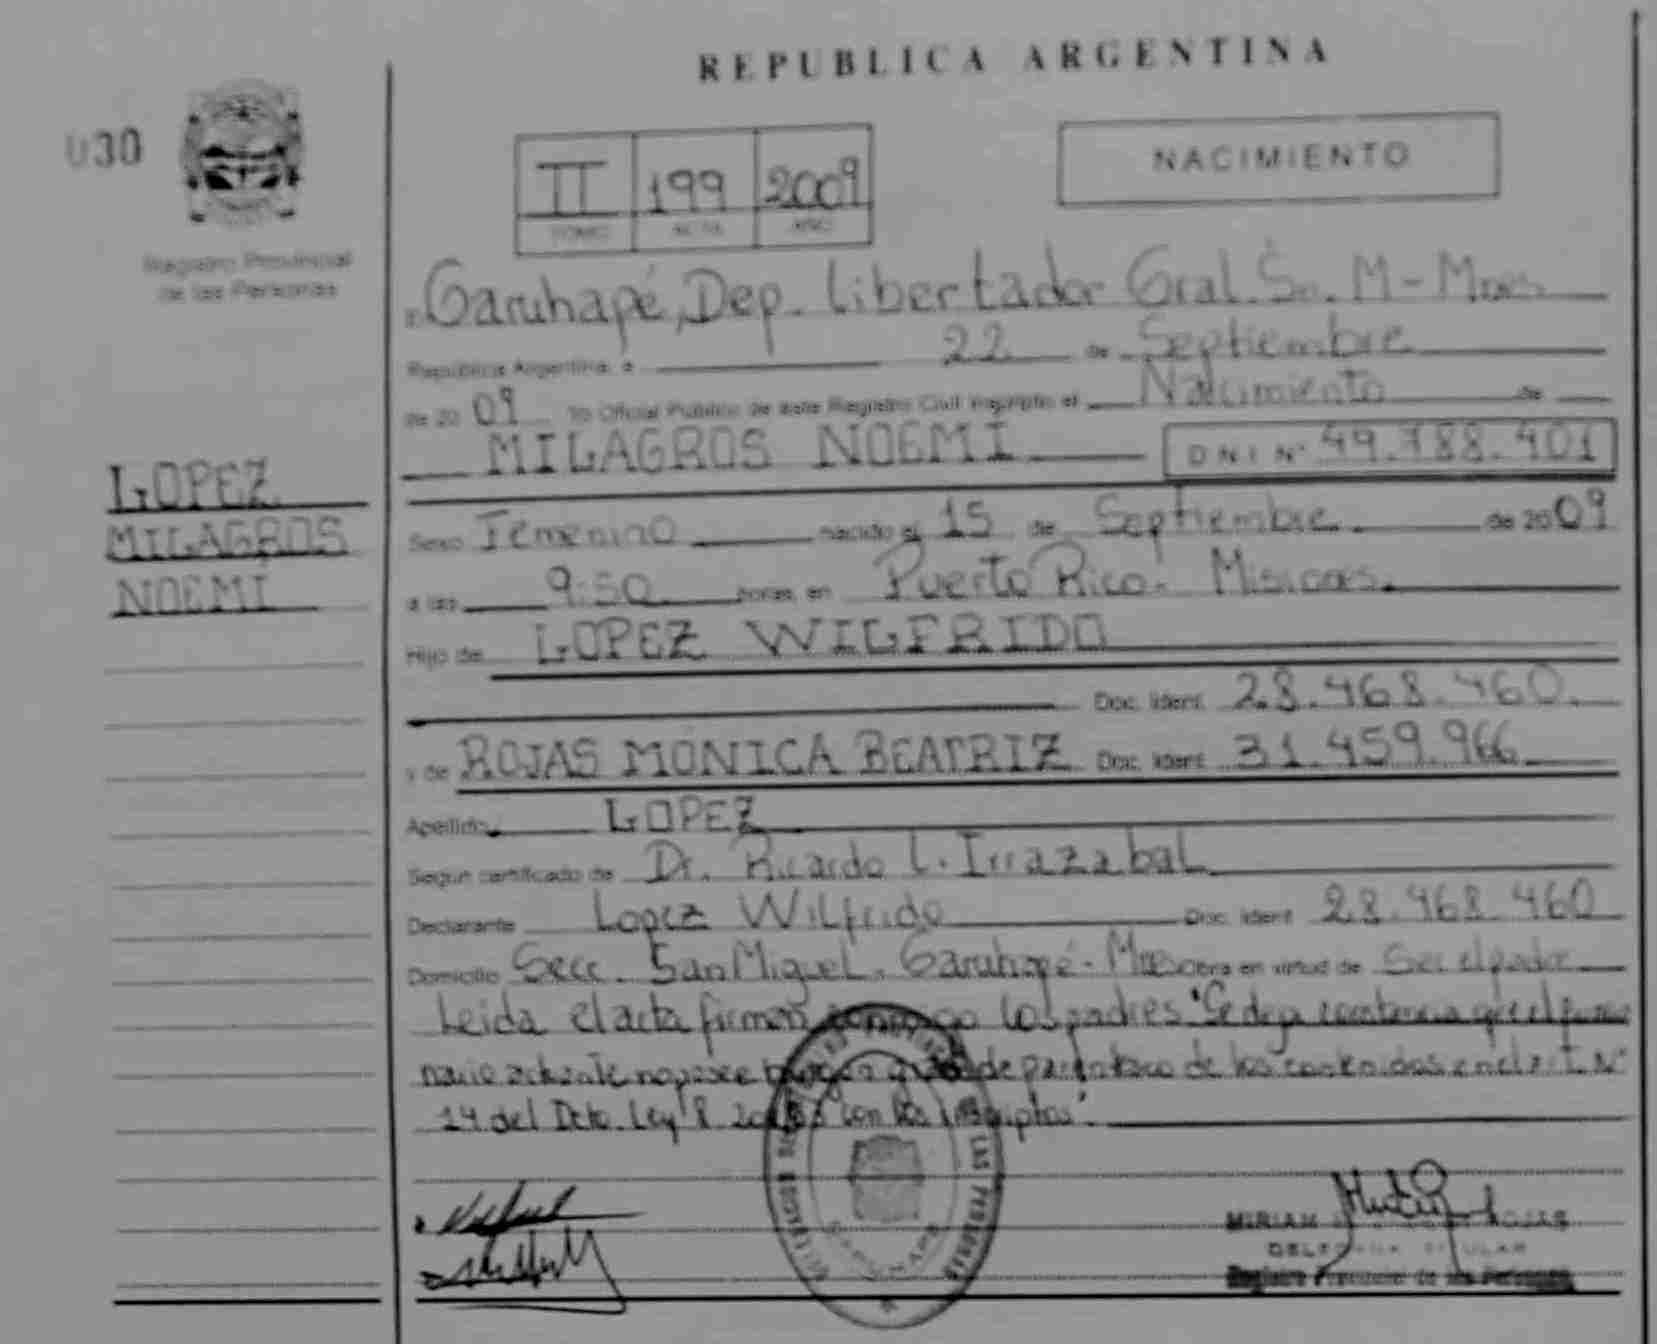 REPUBLICA ARGENTINA
030
NACIMIENTO
II 199 2009
TOMO ACTA AÑO
Registro Provincial
de las Personas
Garuhapé, Dep. Libertador Gral. Sn. M - Mnes
República Argentina, a 22 de Septiembre
de 2009 Yo Oficial Público de este Registro Civil inscripto el Nacimiento de
MILAGROS NOEMI DNI Nº 49.788.401
LOPEZ
MILAGROS
NOEMI
Sexo Femenino nacido el 15 de Septiembre de 2009
a las 9:50 horas, en Puerto Rico. Misiones.
Hijo de LOPEZ WILFRIDO
Doc. Ident. 28.468.460.
y de ROJAS MONICA BEATRIZ Doc. Ident. 31.459.966
Apellido LOPEZ
Según certificado de Dr. Ricardo L. Irrazabal
Declarante Lopez Wilfrido Doc. Ident 28.468.460
Domicilio Secc. San Miguel. Garuhapé - Mnes obra en virtud de Ser el padre
Leida el acta firman conmigo los padres "Se deja constancia que el funcio
nario actuante no posee ningún grado de parentesco de los contenidos en el
14 del Dcto. Ley 8 con los inscriptos".
REGISTRO PROVINCIAL DE LAS PERSONAS
MIRIAM ROJAS
DELEGADA TITULAR
Registro Provincial de las Personas